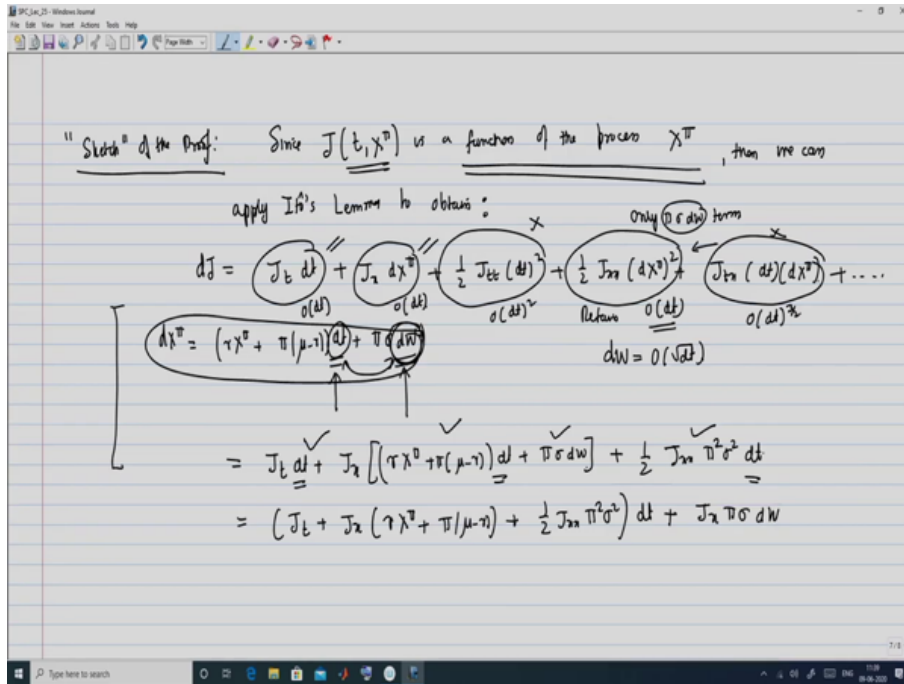 SPC_Lec_23 - Windows Journal
File Edit View Insert Actions Tools Help
Page Width
"Sketch" of the Proof: Since J(t, X^π) is a function of the process X^π, then we can
apply Itô's Lemma to obtain:
only (πσdW) term
dJ = J_t dt + J_x dX^π + 1/2 J_tt (dt)^2 + 1/2 J_xx (dX^π)^2 + J_tx (dt)(dX^π) + ....
O(dt) O(dt) O(dt)^2 Retain O(dt) O(dt)^{3/2}
dX^π = (rX^π + π(μ-r))dt + πσdW
dW = O(√dt)
= J_t dt + J_x [(rX^π + π(μ-r))dt + πσdW] + 1/2 J_xx π^2σ^2 dt
= (J_t + J_x (rX^π + π(μ-r) + 1/2 J_xx π^2σ^2) dt + J_x πσ dW
7/8
Type here to search
ENG
11:09
09-06-2020